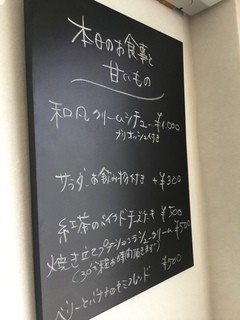 本日のお食事と
甘いもの
和風クリームシチュー ¥1,000
ブリオッシュ付き
サラダ・お飲み物付き +¥300
紅茶のベイクドチーズケーキ ¥500
焼き立て クリーム ¥500
(30分程お時間頂きます)
ベリーとバナナの